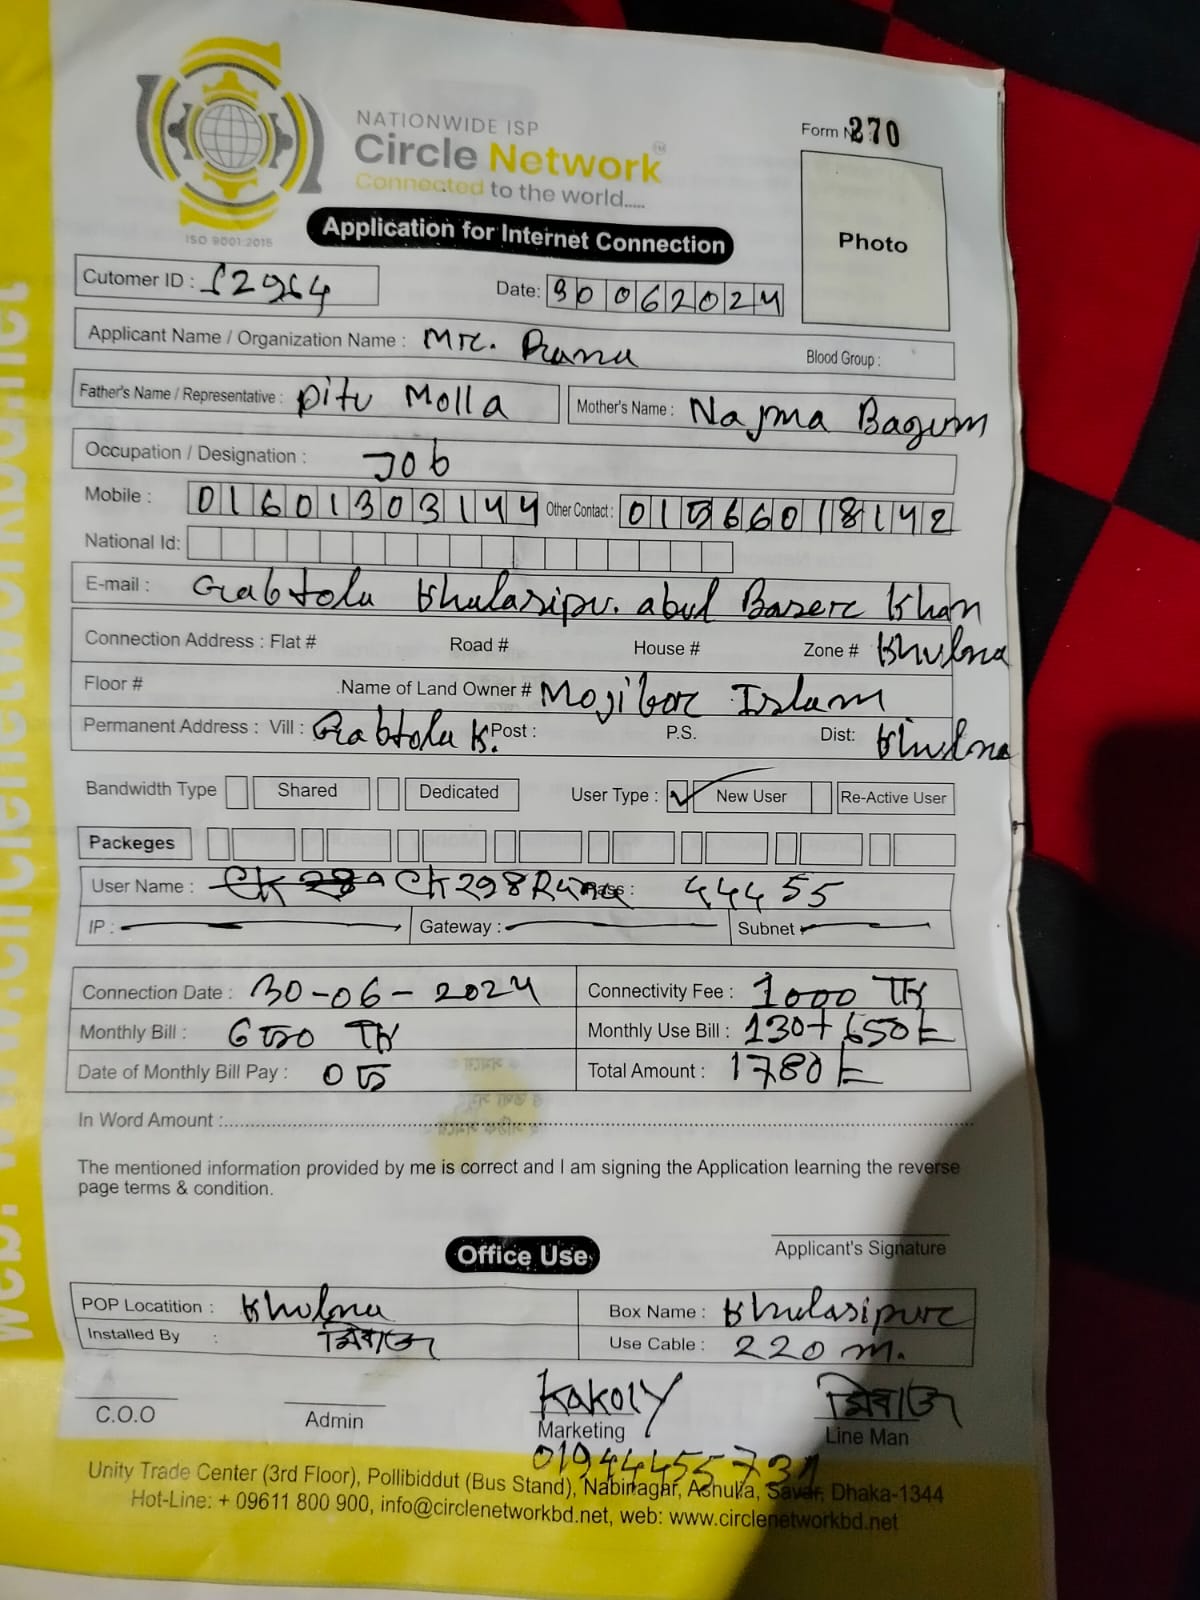 NATIONWIDE ISP
Circle Network
Connected to the world.....
ISO 9001:2015
Form № 270
Photo
Application for Internet Connection
Cutomer ID : 12964
Date: 30062024
Applicant Name / Organization Name : Mr. Rana Blood Group :
Father's Name / Representative : Ditu Molla Mother's Name : Najma Bagum
Occupation / Designation : Job
Mobile : 01601303144 Other Contact : 01566018142
National Id:
E-mail : Gabtola Khalaripur. abul Baser Khan
Connection Address : Flat # Road # House # Zone # Khulna
Floor # .Name of Land Owner # Mojibor Islam
Permanent Address : Vill : Gabtola K. Post : P.S. Dist: Khulna
Bandwidth Type Shared Dedicated User Type : ✓ New User Re-Active User
Packeges
User Name : CK298Rana Pass : 44455
IP : Gateway : Subnet
Connection Date : 30-06-2024 Connectivity Fee : 1000 TK
Monthly Bill : 650 TK Monthly Use Bill : 130+650
Date of Monthly Bill Pay : 05 Total Amount : 1780
In Word Amount :
The mentioned information provided by me is correct and I am signing the Application learning the reverse
page terms & condition.
Applicant's Signature
Office Use
POP Locatition : Khulna Box Name : Khulasipur
Installed By : মিরাজ Use Cable : 220 m.
Kakoly মিরাজ
C.O.O Admin Marketing Line Man
01944455731
Unity Trade Center (3rd Floor), Pollibiddut (Bus Stand), Nabinagar, Ashulia, Savar, Dhaka-1344
Hot-Line: + 09611 800 900, info@circlenetworkbd.net, web: www.circlenetworkbd.net
web: www.circlenetworkbd.net